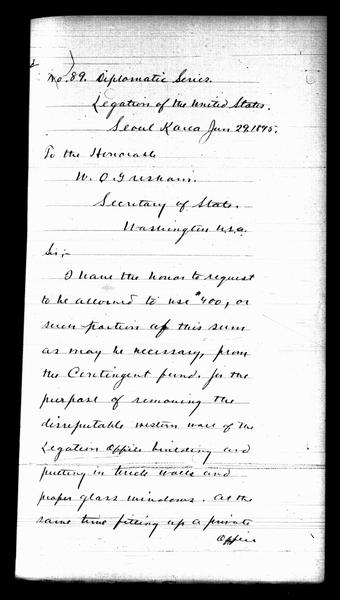 No. 89. Diplomatic Series.
Legation of the United States.
Seoul Korea Jan 29, 1895.
To the Honorable
W. Q. Gresham.
Secretary of State.
Washington U.S.A.
Sir;-
I have the honor to request
to be allowed to use $400, or
such portion of this sum
as may be necessary, from
the Contingent fund. for the
purpose of removing the
disreputable western wall of the
Legation Office building and
putting in brick walls and
proper glass windows. At the
same time fitting up a private
Office